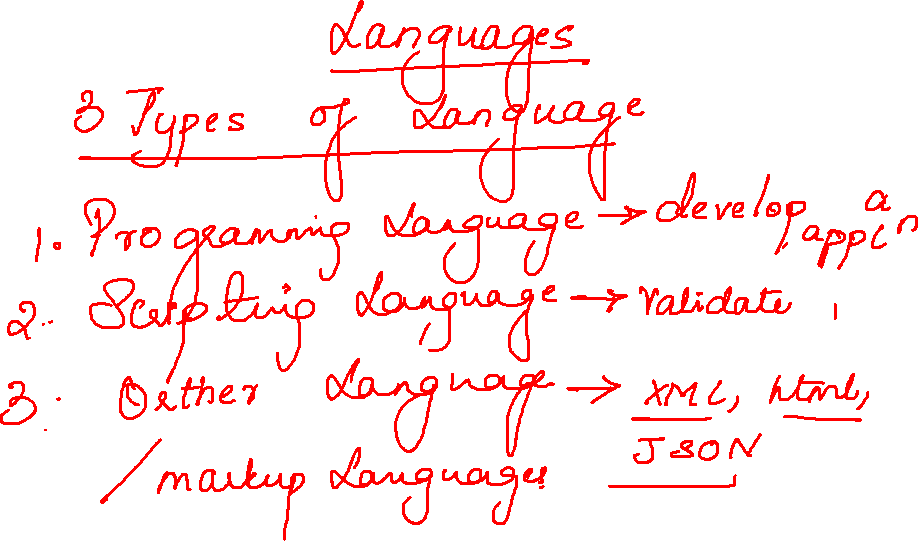 Languages
3 Types of Language
1. Programming Language → develop a appln
2. Scripting Language → Validate ,
3. Other Language → XML, html,
/ markup Languages JSON